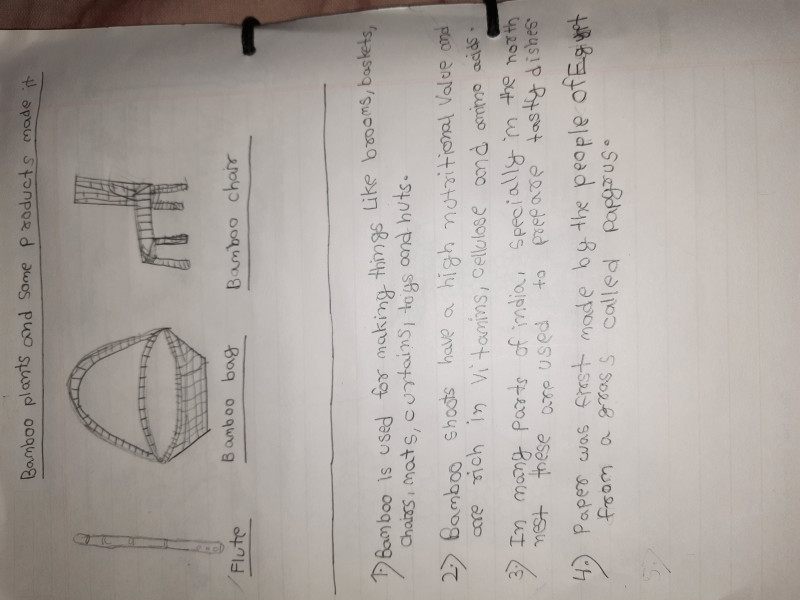 Bamboo plants and some products made it
Flute
Bamboo bag
Bamboo chair
1.) Bamboo is used for making things Like brooms, baskets,
chairs, mats, curtains, toys and huts.
2.) Bamboo shoots have a high nutritional value and
are rich in vitamins, cellulose and amino adds.
3.) In many parts of india, specially in the north
nest these are used to prepare tasty dishes.
4.) Paper was first made by the people of Egipt
from a grass called papyrus.
5.)